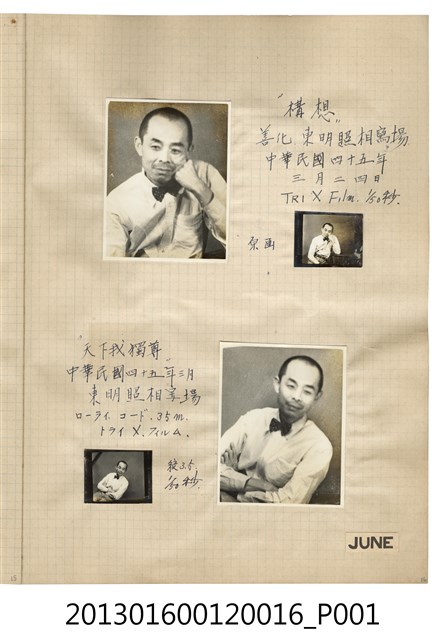 "構想"
善化 東明照相寫場
中華民國四十五年
三月二四日
TRI X Film. 1/50秒.
原画
"天下我獨尊"
中華民國四十五年三月
東明照相寫場
ローライ コード. 35m.
トライ X. フィルム.
絞3.5.
1/50秒.
JUNE
15
16
201301600120016_P001